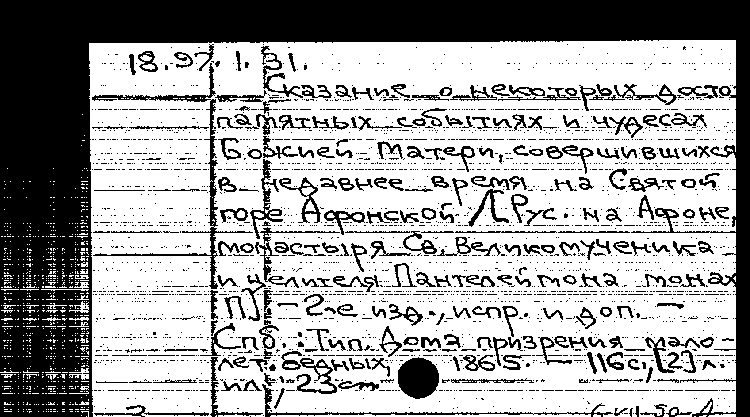 18.97.1.31.
Сказание о некоторых досто-
памятных событиях и чудесах
Божией Матери, совершившихся
в недавнее время на Святой
горе Афонской / [Рус. на Афоне,
монастыря Св. Великомученика
и целителя Пантелеймона монах
П] – 2-е изд., испр. и доп. –
Спб.: Тип. Дома призрения мало-
лет. бедных, 1865. – 116 с., [2] л.
ил.; 23 см